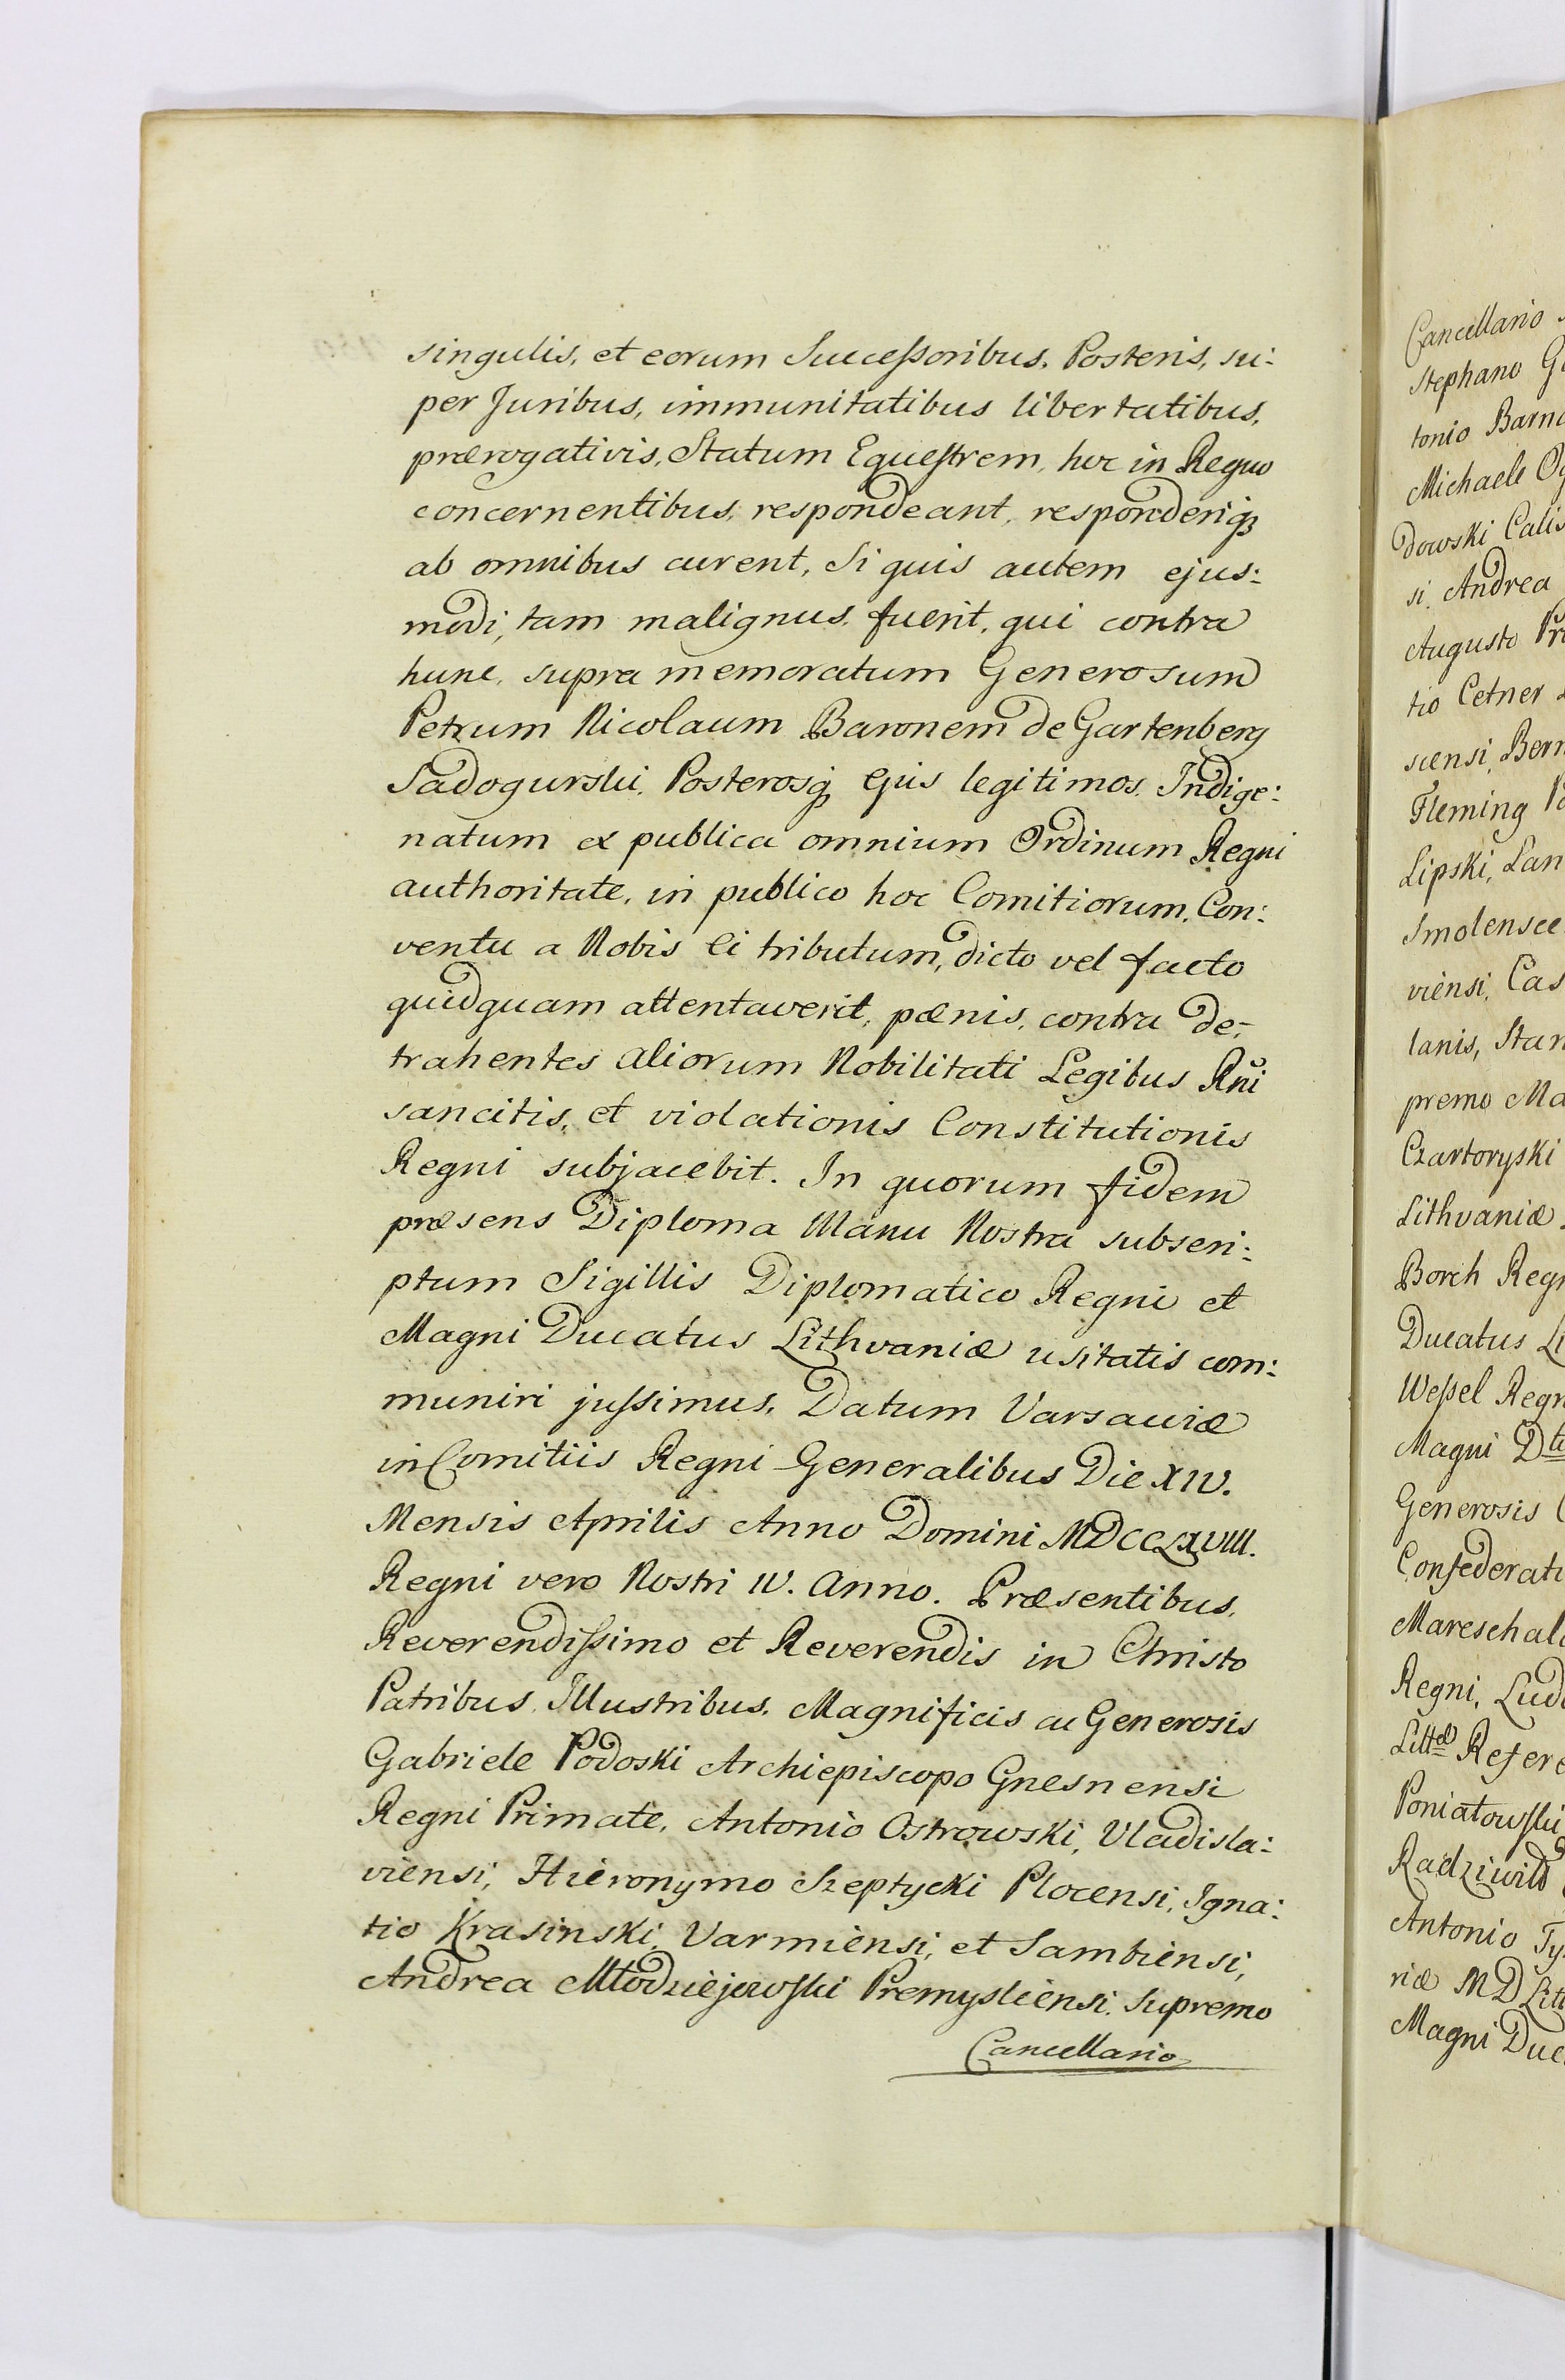 singulis, et eorum Successoribus, Posteris, su-
per Juribus, immunitatibus libertatibus,
prærogativis, Statum Equestrem, hoc in Regno
concernentibus, respondeant, responderiq3
ab omnibus curent, Si quis autem ejus-
modi, tam malignus, fuerit, qui contra
hunc, supra memoratum Generosum
Petrum Nicolaum Baronem de Gartenberg
Sadogurski, Posterosq3 Ejus legitimos, Indige-
natum ex publica omnium Ordinum Regni
authoritate, in publico hoc Comitiorum, Con-
ventu a Nobis Ei tributum, dicto vel facto
quidquam attentaverit, pœnis, contra de-
trahentes aliorum Nobilitati Legibus Rñi
sancitis, et violationis Constitutionis
Regni subjacebit. In quorum fidem
præsens Diploma Manu Nostra subscri-
ptum Sigillis Diplomatico Regni et
Magni Ducatus Lithvaniæ usitatis com-
muniri jussimus, Datum Varsaviæ
in Comitiis Regni Generalibus Die XIV.
Mensis Aprilis Anno Domini MDCCLXVIII.
Regni vero Nostri IV. Anno. Præsentibus,
Reverendissimo et Reverendis in Christo
Patribus, Illustribus, Magnificis ac Generosis
Gabriele Podoski Archiepiscopo Gnesnensi
Regni Primate, Antonio Ostrowski, Vladisla-
viensi, Hieronymo Szeptycki Plocensi, Igna-
tio Krasinski, Varmiensi, et Sambiensi,
Andrea Młodziejowski Premysliensi, Supremo
Cancellario
Cancellario
Stephano
tonio
Michaele
dowski
si, Andrea
Augusto
tio Cetner
scensi,
Fleming
Lipski,
Smolensce
viensi,
lanis,
premo
Czartoryski
Lithvaniæ
Borch
Ducatus
Wessel
Magni
Generosis
Confederati
Mareschal
Regni,
Littæ
Poniatowski
Radziwiłł
Antonio
riæ MD
Magni